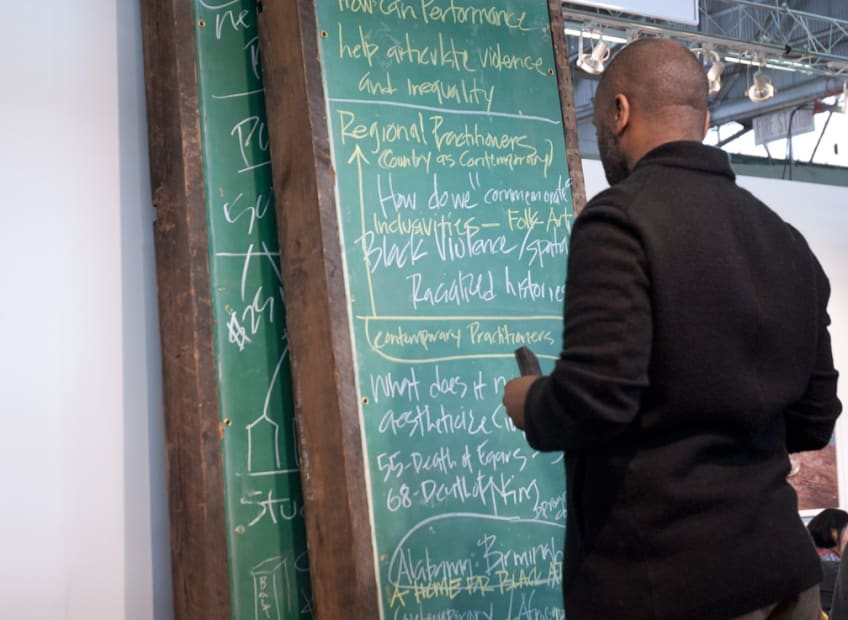 ne
How can Performance
help articulate violence
and inequality
Regional Practitioners
(Country as Contemporary)
How do we "commemorate"
Inclusivities — Folk Art
Black Violence/spatia
Racialized histories
Contemporary Practitioners
What does it
aestheticize
55-Death of
68-Death of King
Alabama. Birmingh
A HOME FOR BLACK
Contemporary /
$25
Stu